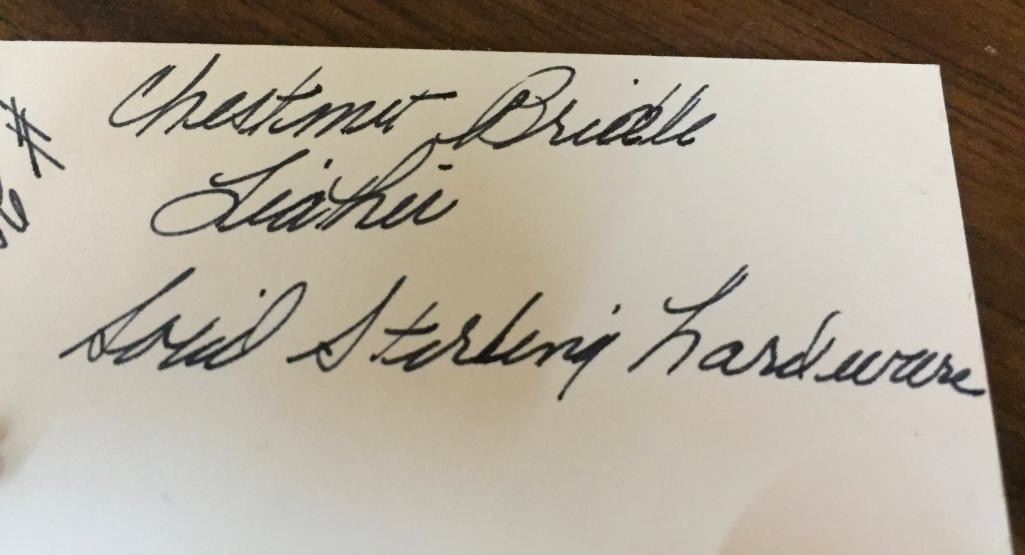 Chestnut Bridle
Leather
Solid Sterling hardware